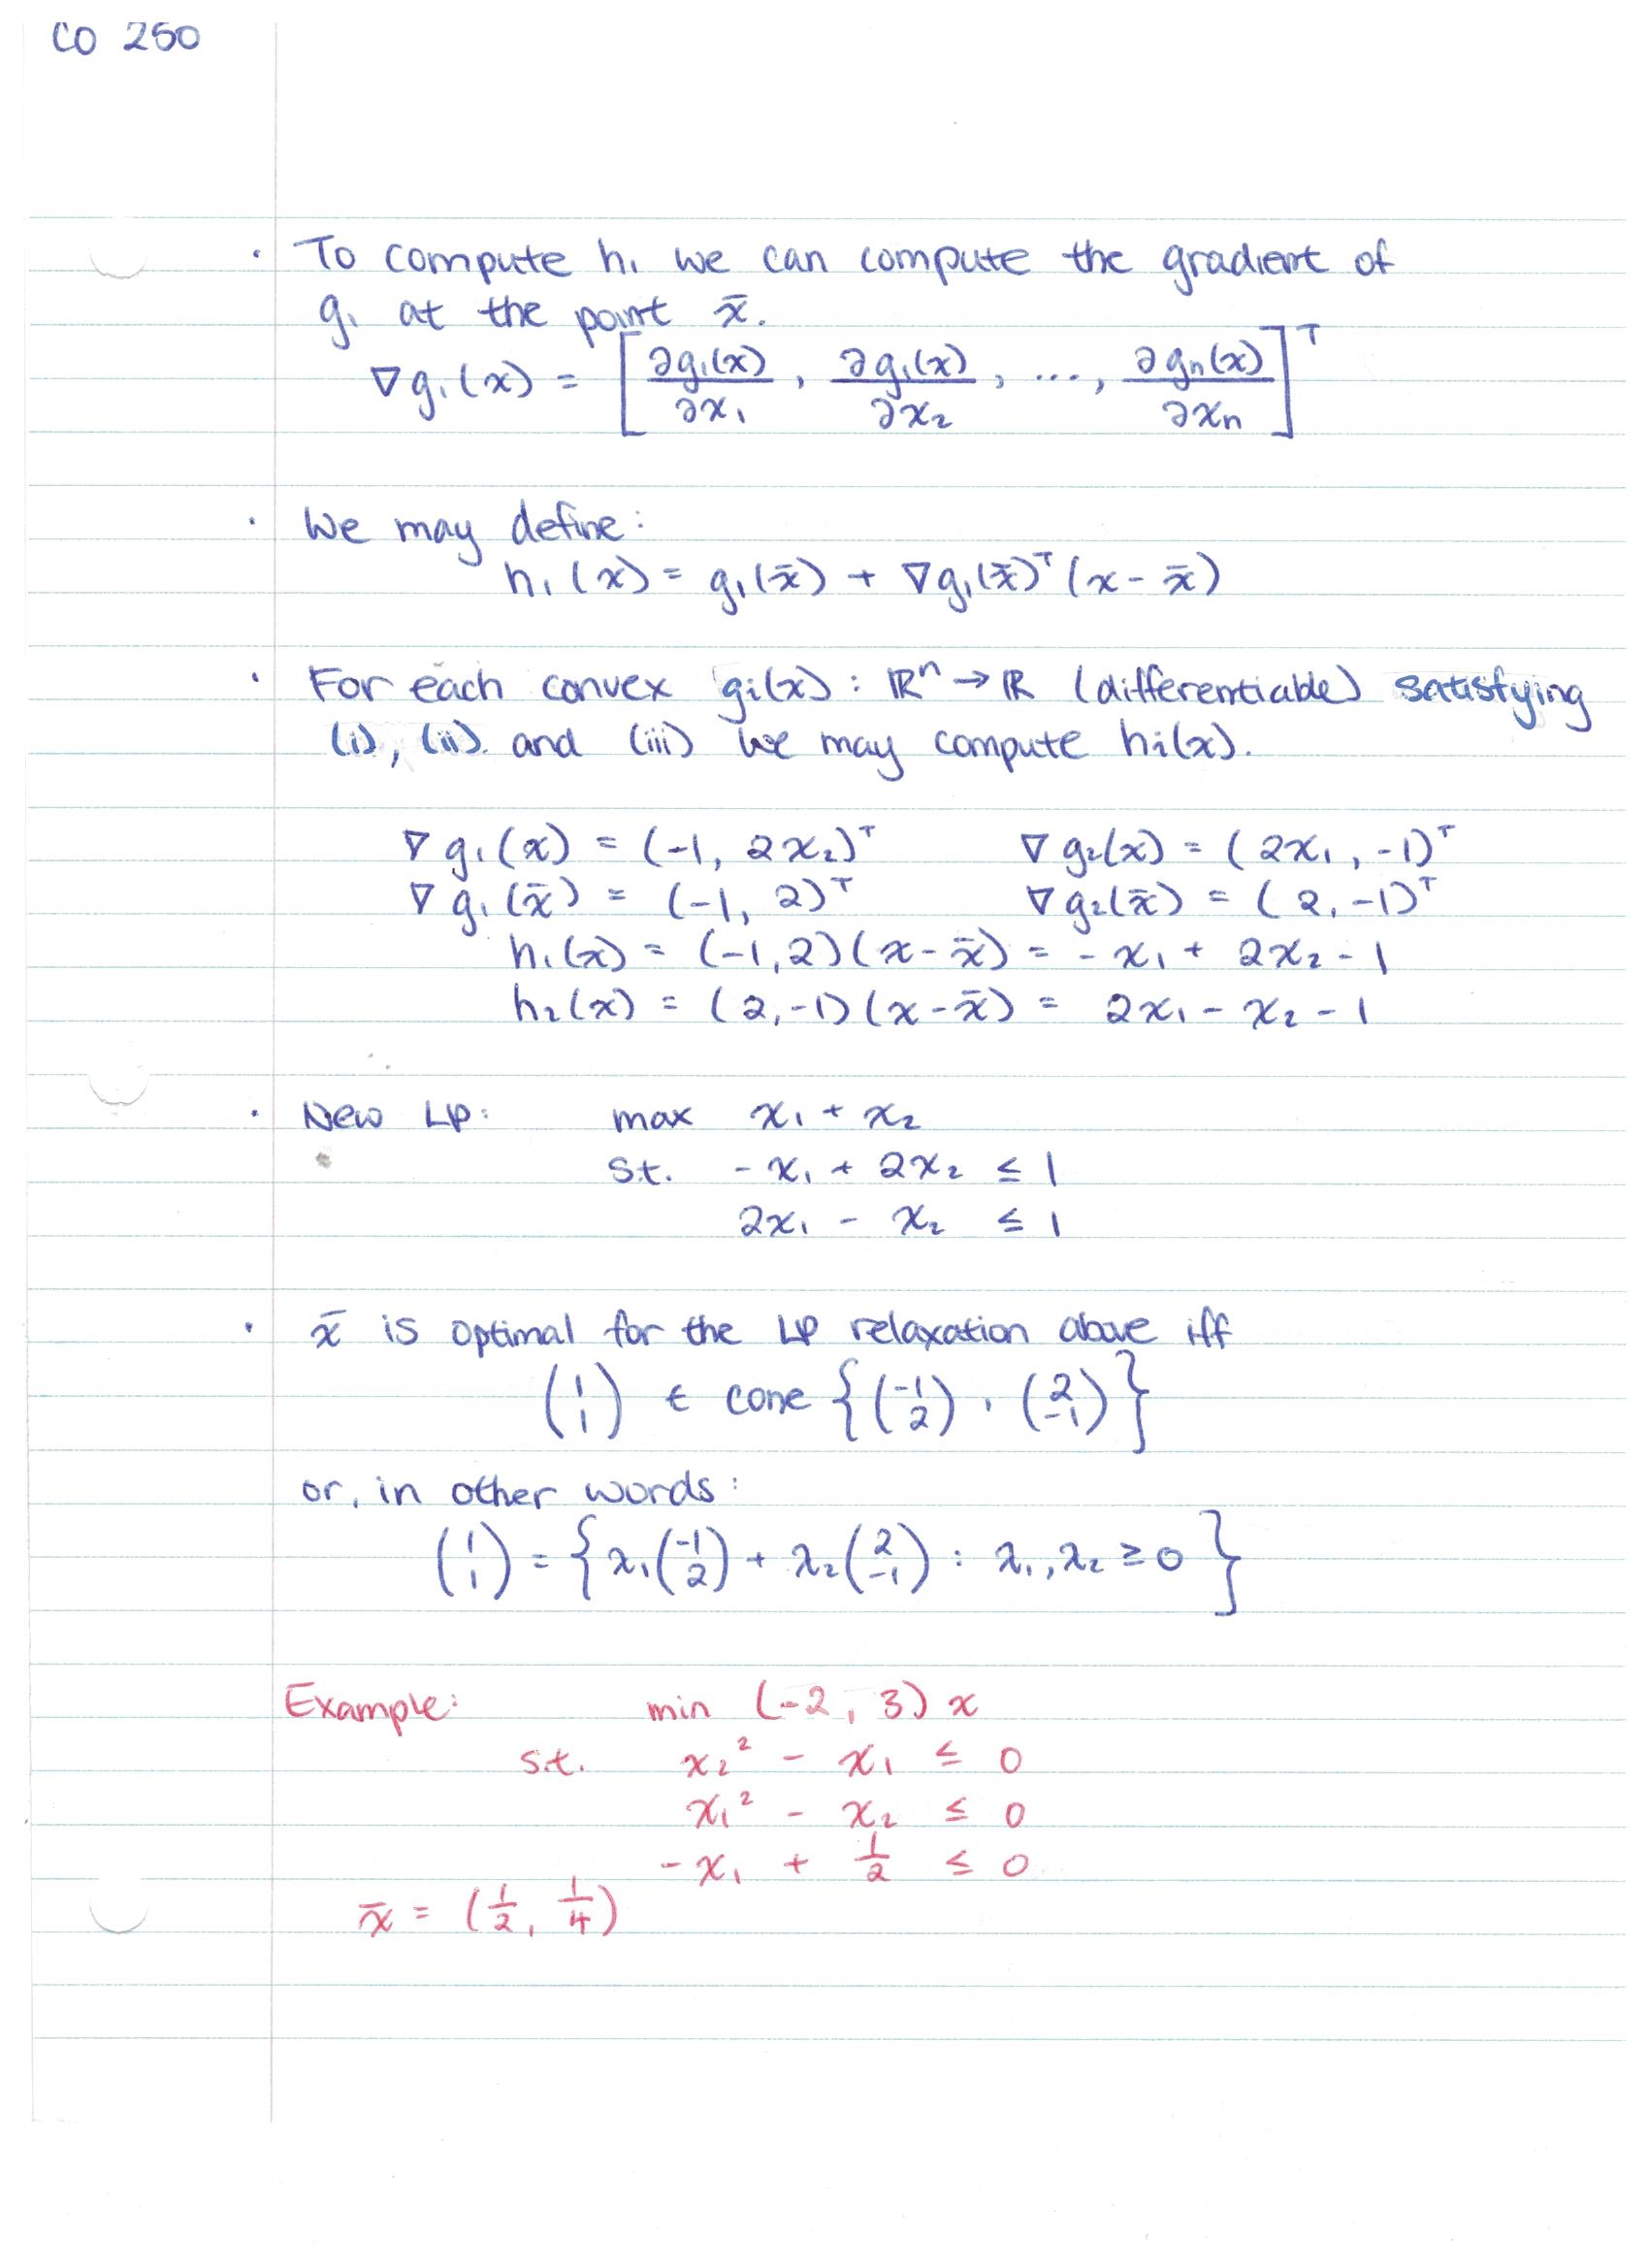 CO 250
· To compute h₁ we can compute the gradient of
g₁ at the point x̄.
∇g₁(x) = [∂g₁(x)/∂x₁, ∂g₁(x)/∂x₂, ..., ∂gₙ(x)/∂xₙ]ᵀ
· We may define:
h₁(x) = g₁(x̄) + ∇g₁(x̄)ᵀ(x - x̄)
· For each convex gi(x): ℝⁿ → ℝ (differentiable) satisfying
(i), (ii) and (iii) we may compute hi(x).
∇g₁(x) = (-1, 2x₂)ᵀ ∇g₂(x) = (2x₁, -1)ᵀ
∇g₁(x̄) = (-1, 2)ᵀ ∇g₂(x̄) = (2, -1)ᵀ
h₁(x) = (-1,2)(x - x̄) = -x₁ + 2x₂ - 1
h₂(x) = (2,-1)(x - x̄) = 2x₁ - x₂ - 1
· New LP: max x₁ + x₂
s.t. -x₁ + 2x₂ ≤ 1
2x₁ - x₂ ≤ 1
· x̄ is optimal for the LP relaxation above iff
(1 1) ∈ cone {(-1 2), (2 -1)}
or, in other words:
(1 1) = {λ₁(-1 2) + λ₂(2 -1) : λ₁, λ₂ ≥ 0}
Example: min (-2, 3) x
s.t. x₂² - x₁ ≤ 0
x₁² - x₂ ≤ 0
-x₁ + 1/2 ≤ 0
x̄ = (1/2, 1/4)